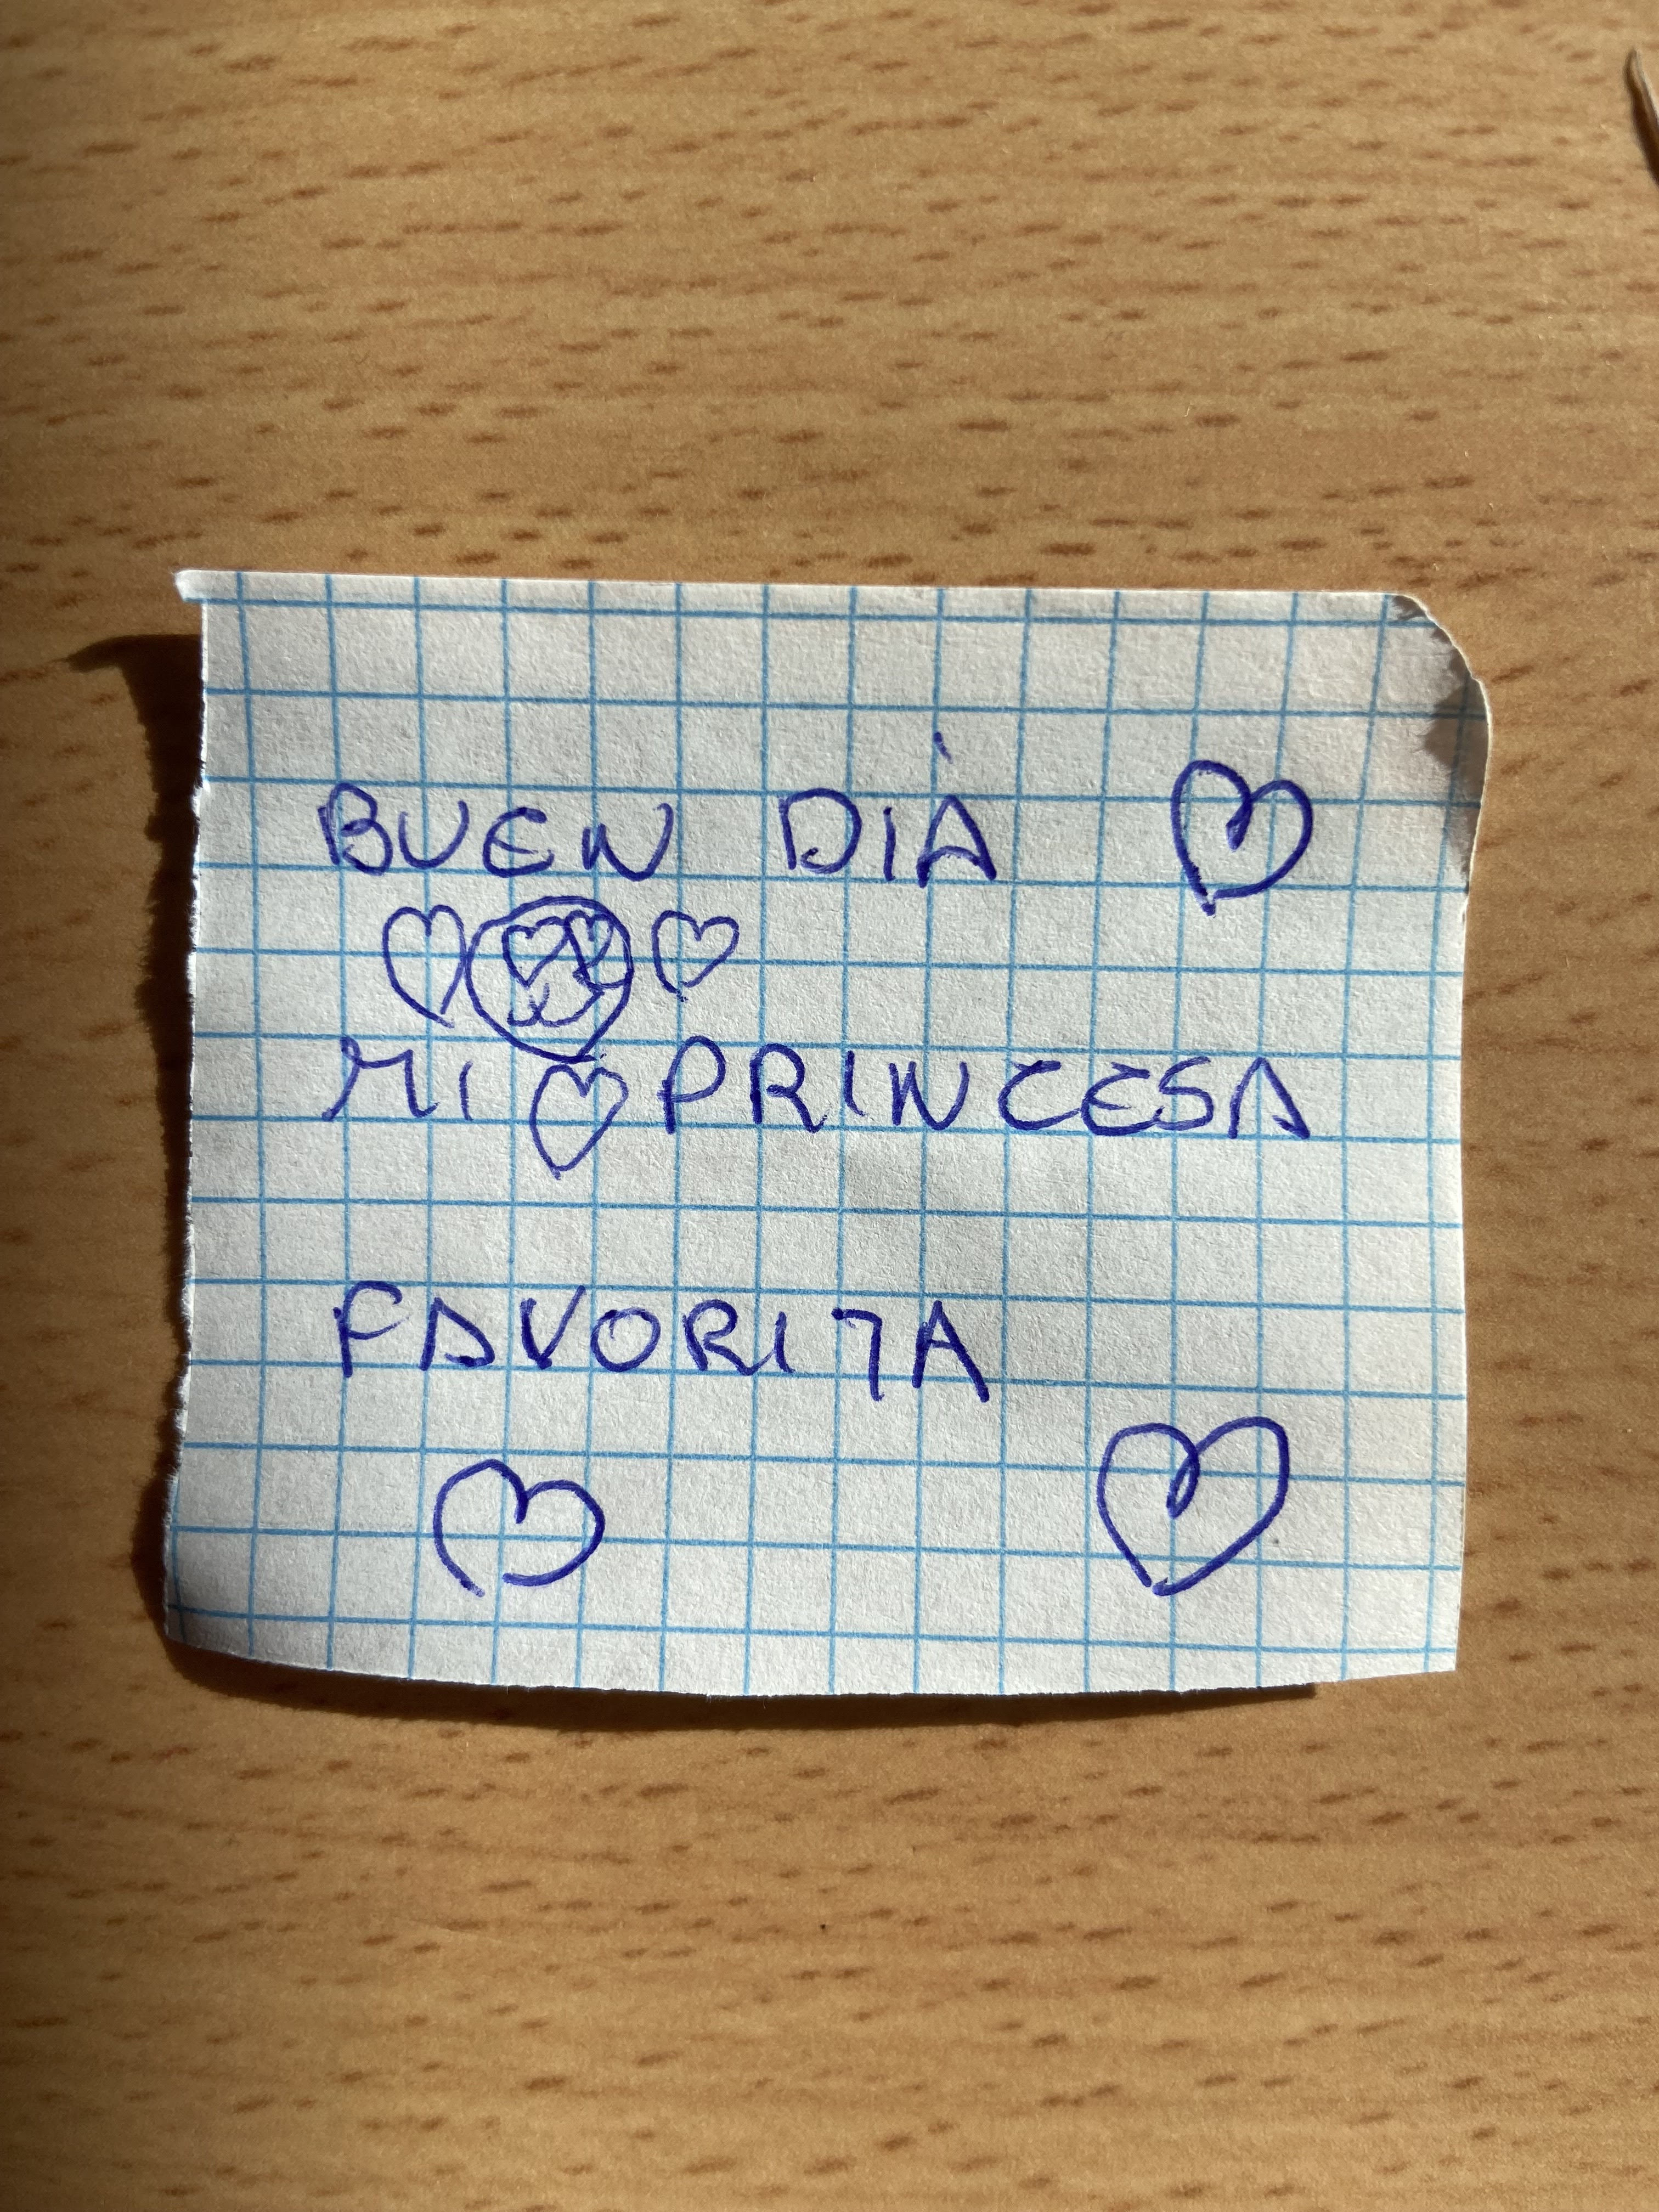 BUEN DIÀ
MI PRINCESA
FAVORITA